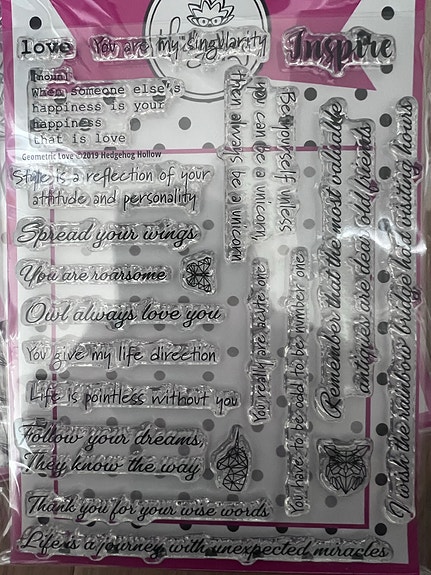 love
You are my singularity
Inspire
[noun]
When someone else's
happiness is your
happiness
that is love
Geometric Love ©2019 Hedgehog Hollow
Style is a reflection of your
attitude and personality
Spread your wings
You are roarsome
Owl always love you
You give my life direction
Life is pointless without you
Follow your dreams,
They know the way
Thank you for your wise words
Life is a journey with unexpected miracles
Be yourself unless
you can be a unicorn,
then always be a unicorn
You have to be odd to be number one
Remember that the most valuable
antiques are dear old friends
I wish the rainbow bridge had visiting hours